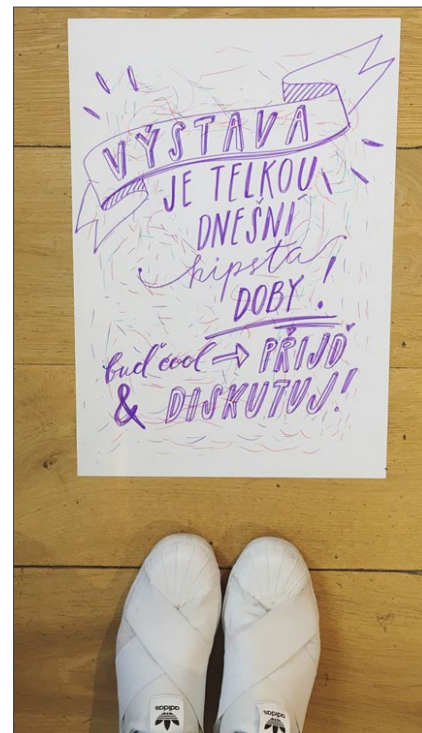 VÝSTAVA
JE TELKOU
DNEŠNÍ
hipsta
DOBY!
buď cool → PŘIJĎ
& DISKUTUJ!
adidas
adidas